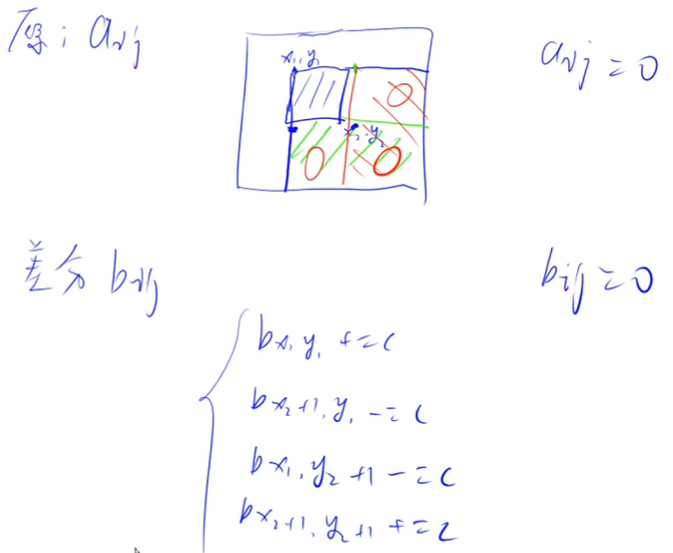 原：aij
aij = 0
x₁, y₁
x₂, y₂
差分 bij
bij = 0
bx₁y₁ += c
bx₂+1, y₁ -= c
bx₁, y₂+1 -= c
bx₂+1, y₂+1 += c